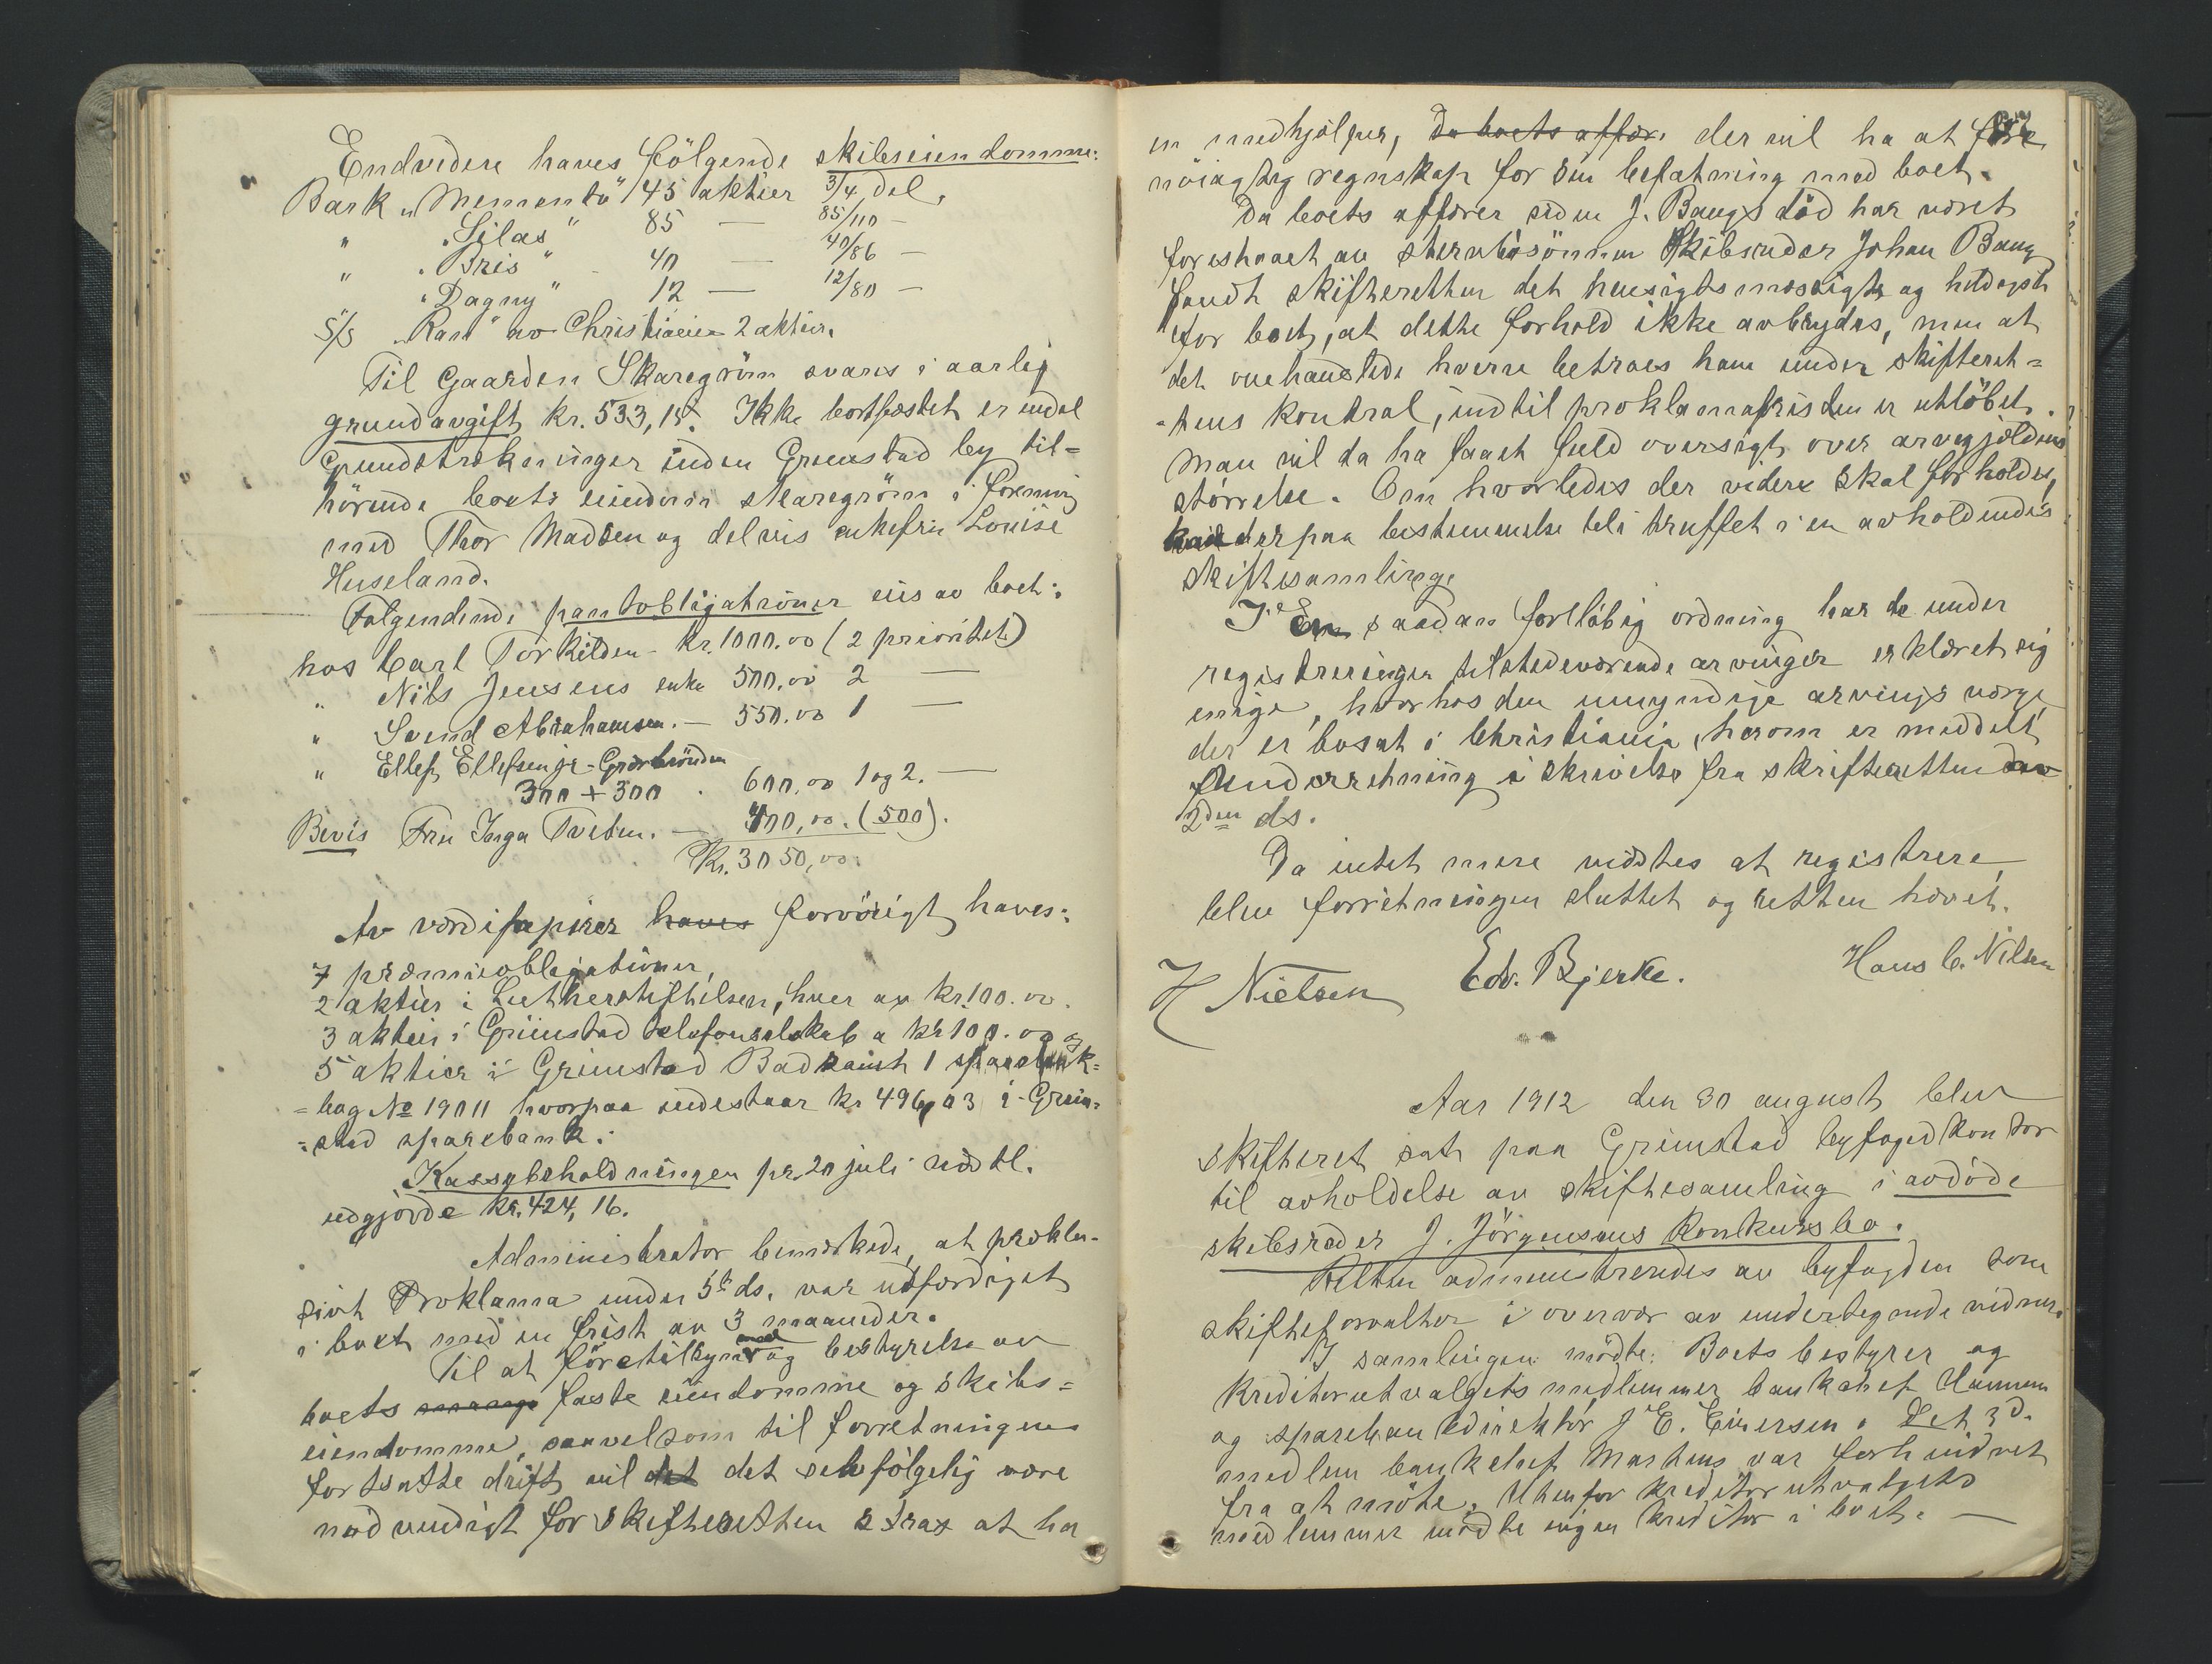 Endvidere haves følgende skibseiendomme:
Bark „Memento" 45 aktier 3/4 del.
" „Silas" 85 — 85/110 —
" „Bris" 40 — 40/86 —
" „Dagny" 12 — 12/80 —
S/S „Ran" av Christiania 2 aktier.
Til Gaarden Skaregrøm svares i aarlig
grundavgift kr. 533,15. Ikke bortfæstet er endel
grundstrækninger inden Grimstad by til=
hørende boets eiendom Skaregrøm i forening
med Thor Madsen og delvis enkefru Louise
Huseland.
Følgende pantobligationer eies av boet:
hos Carl Torkildsen - kr. 1000.00 (2 prioritet)
" Nils Jensens enke 500.00 2 —
" Svend Abrahamsen. — 550.00 1 —
" Ellef Ellefsen jr - Grøsbrønden
300 + 300 . 600.00 1 og 2. —
Bevis Fru Inga Tveten. — 400,00. (500).
Kr. 3050,00.
Av værdipapirer haves forøvrigt haves:
7 præmieobligationer,
2 aktier i Lutherstiftelsen, hver av kr. 100.00.
3 aktier i Grimstad telefonselskab a kr 100.00 og
5 aktier i Grimstad Bad samt 1 sparebank=
=bog No 19011 hvorpaa indestaar kr 496,03 i Grim=
=stad sparebank.
Kassabeholdningen pr. 20 juli
udgjorde kr. 424,16.
Administrator bemerkede, at prokla-
Proklama under 5te ds. var udfærdiget
i boet med en frist av 3 maaneder.
Til at føre tilsyn med og bestyrelse av
boets faste eiendomme og skibs=
eiendomme, saavelsom til forretningens
fortsatte drift vil det det selvfølgelig være
nødvendigt for skifteretten strax at ha
en medhjælper, Da boets affær. der vil ha at føre
nøiagtig regnskap for sin befatning med boet.
Da boets affærer siden J. Bangs død har været
forestaaet av stervbosønnen skibsreder Johan Bang
fandt skifteretten det hensigtsmæssigt og heldigst
for boet, at dette forhold ikke avbrydes, men at
det ovenanstede hverv betroes ham under skifteret=
=tens kontrol, indtil proklamafristen er utløbet.
Man vil da ha faaet fuld oversigt over arvegjældens
størrelse. Om hvorledes der videre skal forholdes,
derpaa bestemmelse bli truffet i en avholdendes
skiftesamling.
I en saadan forløbig ordning har de under
registreringen tilstedeværende arvinger erklæret sig
enige, hvorhos den umyndige arvings værge
der er bosat i Christiania, herom er meddelt
underretning i skrivelse fra skifteretten av
2den ds.
Da intet mere vidstes at registrere,
blev forretningen sluttet og retten hævet.
H Nielsen Edv. Bjerke. Hans C. Nilsen
Aar 1912 den 30 august blev
skifteret sat paa Grimstad byfogedkontor
til avholdelse av skiftesamling i avdøde
skibsreder J. Jørgensens konkursbo.
Retten administreredes av byfogden som
skifteforvalter i overvær av undertegnede vidner.
I samlingen mødte: Boets bestyrer og
kreditorutvalgets medlemmer bankchef
og sparebankdirektør J E. Eiversen. Det 3d.
medlem bankchef Martens var forhindret
fra at møte. Utenfor kreditorutvalgets
medlemmer mødte ingen kreditor i boet. —